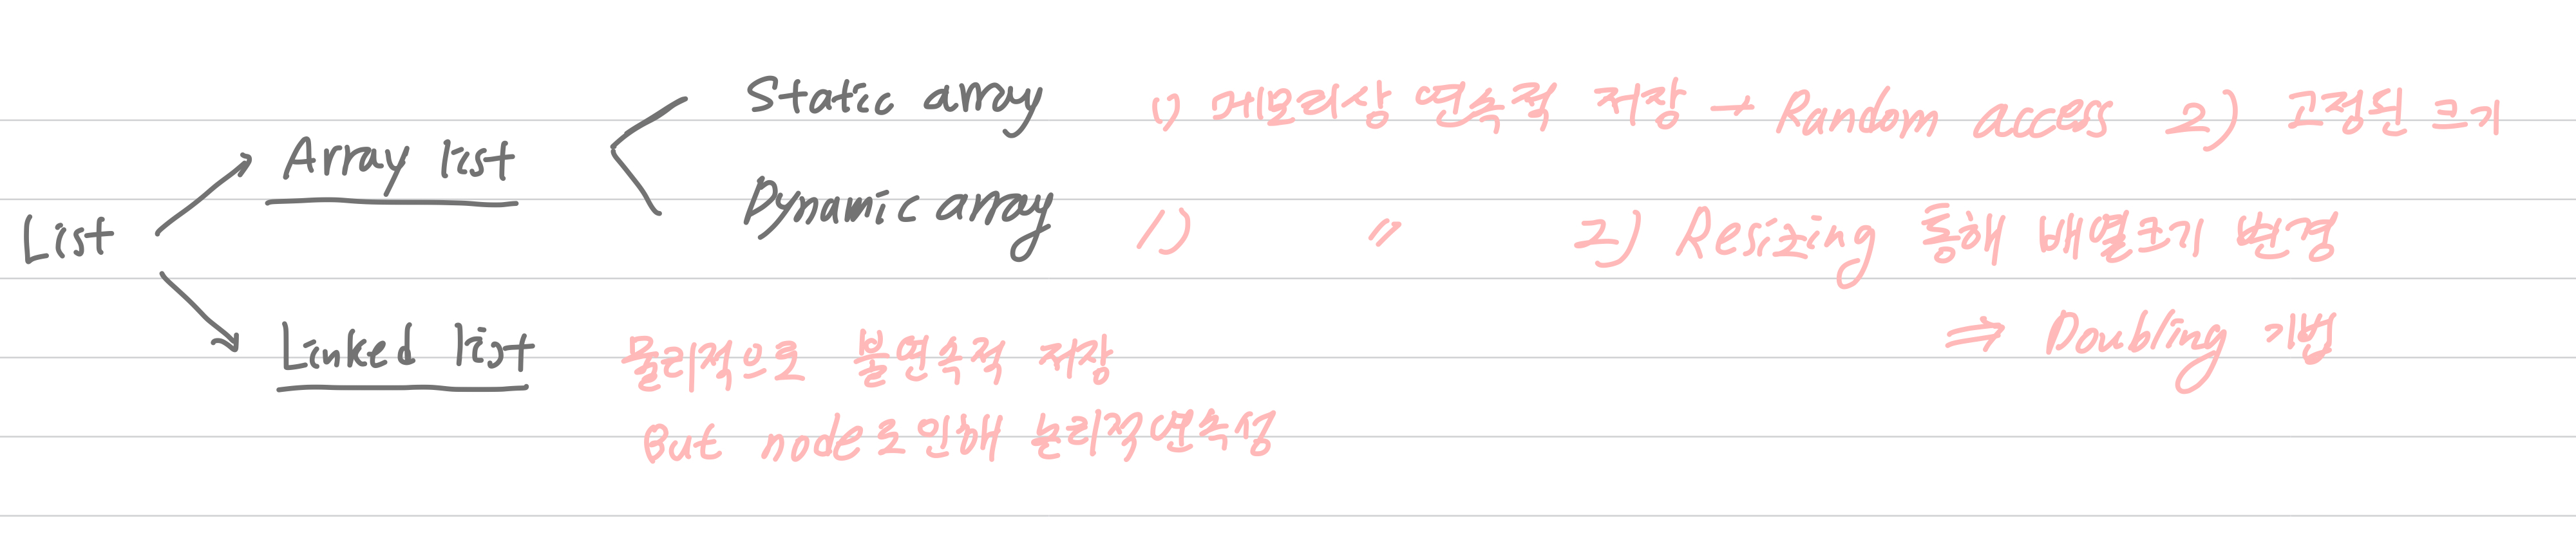 Static array 1) 메모리상 연속적 저장 → Random access 2) 고정된 크기
Array list
Dynamic array 1) 〃 2) Resizing 통해 배열크기 변경
List
⇒ Doubling 기법
Linked list 물리적으로 불연속적 저장
But node로 인해 논리적연속성